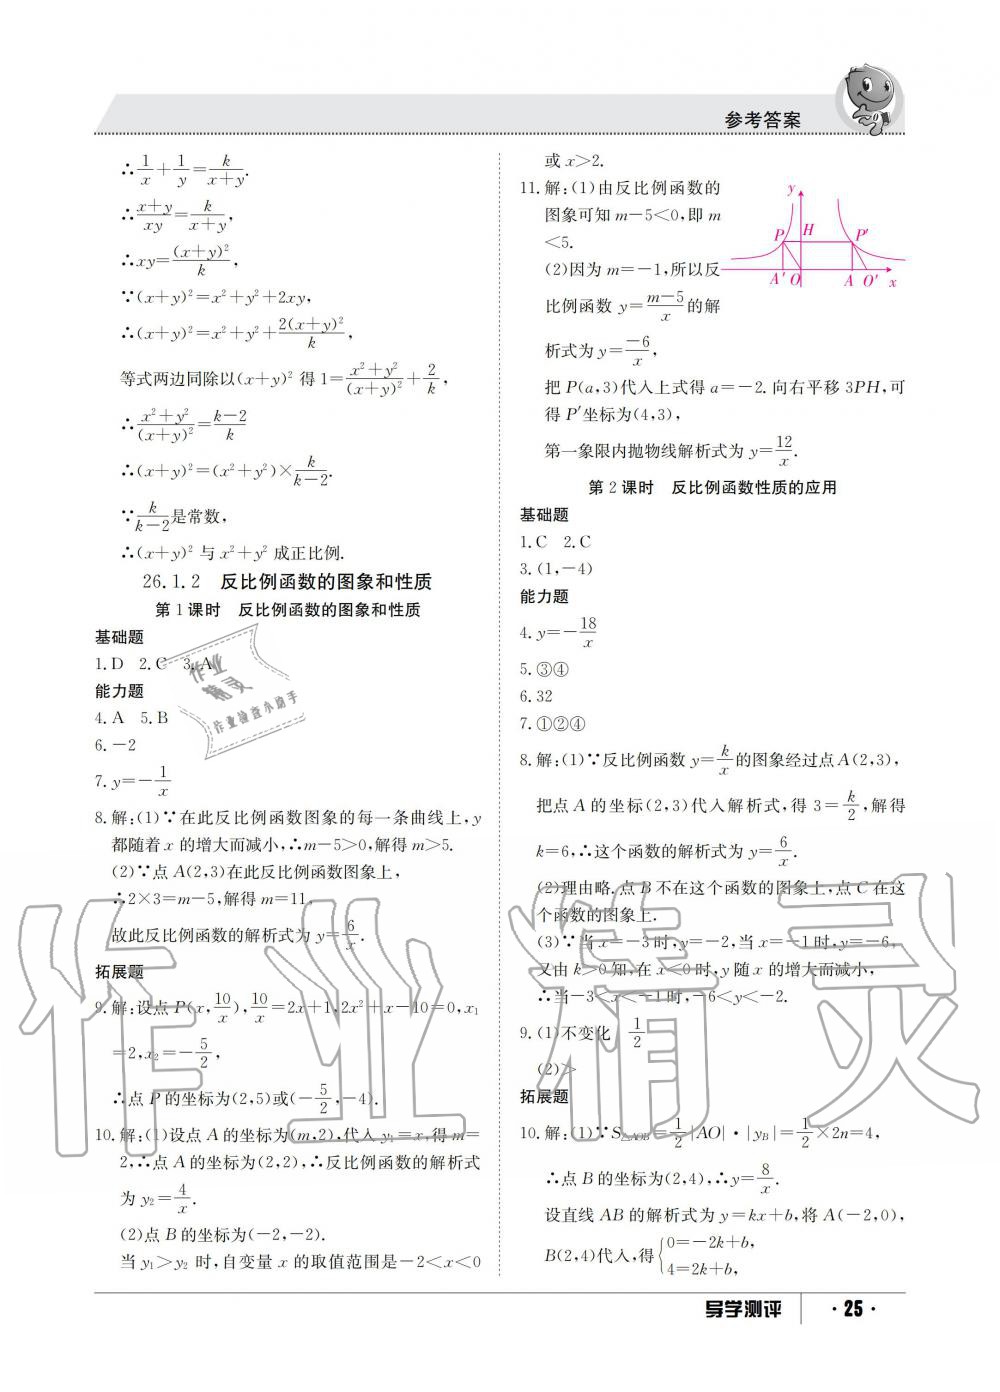 参考答案
∴1/x+1/y=k/(x+y).
∴(x+y)/xy=k/(x+y),
∴xy=(x+y)²/k,
∵(x+y)²=x²+y²+2xy,
∴(x+y)²=x²+y²+2(x+y)²/k,
等式两边同除以(x+y)² 得 1=(x²+y²)/(x+y)²+2/k,
∴(x²+y²)/(x+y)²=(k-2)/k
∴(x+y)²=(x²+y²)×k/(k-2).
∵k/(k-2)是常数,
∴(x+y)² 与 x²+y² 成正比例.
26.1.2 反比例函数的图象和性质
第 1 课时 反比例函数的图象和性质
基础题
1. D 2. C 3. A
能力题
4. A 5. B
6. -2
7. y=-1/x
8. 解:(1)∵在此反比例函数图象的每一条曲线上,y
都随着 x 的增大而减小,∴m-5>0,解得 m>5.
(2)∵点 A(2,3)在此反比例函数图象上,
∴2×3=m-5,解得 m=11,
故此反比例函数的解析式为 y=6/x.
拓展题
9. 解:设点 P(x,10/x),10/x=2x+1,2x²+x-10=0,x₁
=2,x₂=-5/2,
∴点 P 的坐标为(2,5)或(-5/2,-4).
10. 解:(1)设点 A 的坐标为(m,2),代入 y₁=x,得 m=
2,∴点 A 的坐标为(2,2),∴反比例函数的解析式
为 y₂=4/x.
(2)点 B 的坐标为(-2,-2).
当 y₁>y₂ 时,自变量 x 的取值范围是-2<x<0
或 x>2.
11. 解:(1)由反比例函数的
图象可知 m-5<0,即 m
<5.
(2)因为 m=-1,所以反
比例函数 y=(m-5)/x的解
析式为 y=-6/x,
y
P H P′
A′ O A O′ x
把 P(a,3)代入上式得 a=-2. 向右平移 3PH,可
得 P′坐标为(4,3),
第一象限内抛物线解析式为 y=12/x.
第 2 课时 反比例函数性质的应用
基础题
1. C 2. C
3. (1,-4)
能力题
4. y=-18/x
5. ③④
6. 32
7. ①②④
8. 解:(1)∵反比例函数 y=k/x的图象经过点 A(2,3),
把点 A 的坐标(2,3)代入解析式,得 3=k/2,解得
k=6,∴这个函数的解析式为 y=6/x.
(2)理由略. 点 B 不在这个函数的图象上,点 C 在这
个函数的图象上.
(3)∵当 x=-3 时,y=-2,当 x=-1 时,y=-6,
又由 k>0 知,在 x<0 时,y 随 x 的增大而减小,
∴当-3<x<-1 时,-6<y<-2.
9. (1)不变化 1/2
(2)>
拓展题
10. 解:(1)∵S△AOB=1/2|AO|·|yB|=1/2×2n=4,
∴点 B 的坐标为(2,4),∴y=8/x.
设直线 AB 的解析式为 y=kx+b,将 A(-2,0),
B(2,4)代入,得{0=-2k+b,
4=2k+b,
导学测评 ·25·
作业精灵
作业检查小助手
作业精灵